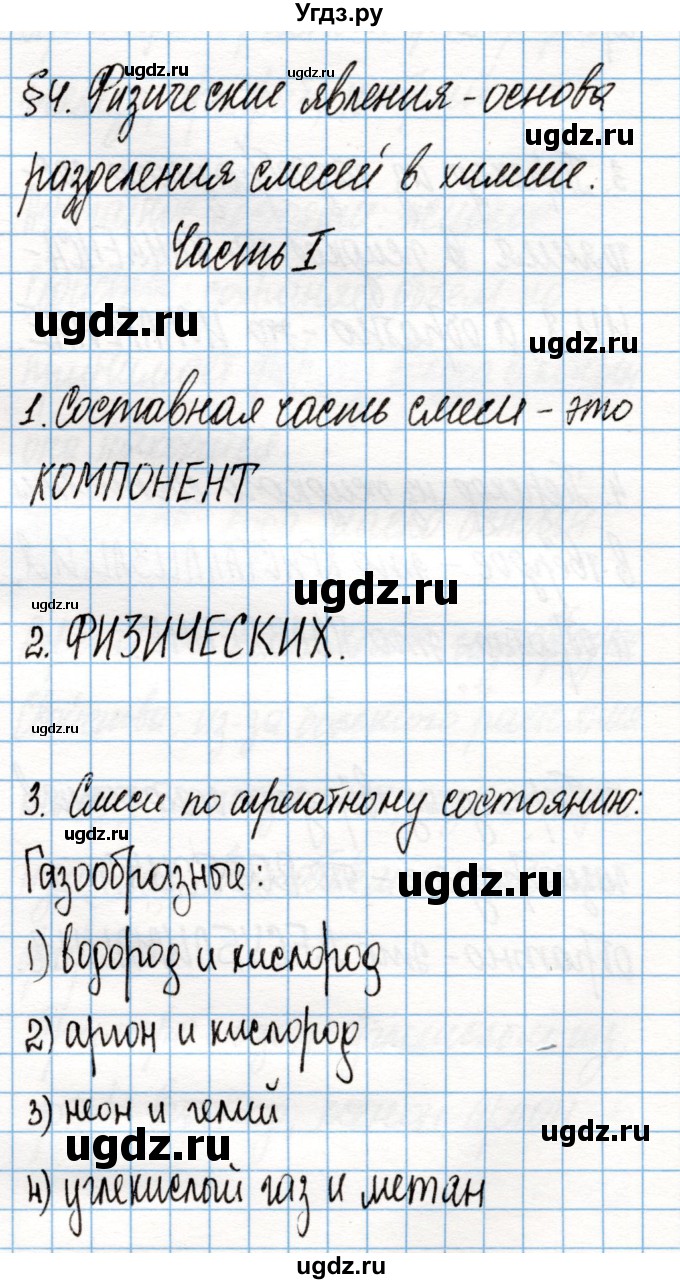 Угдз.ру
ugdz.ru ugdz.ru
§4. Физические явления - основа
ugdz.ru
разделения смесей в химии.
Часть I
ugdz.ru ugdz.ru
1. Составная часть смеси - это
КОМПОНЕНТ
ugdz.ru
ugdz.ru
2. ФИЗИЧЕСКИХ.
ugdz.ru
3. Смеси по агрегатному состоянию:
ugdz.ru
Газообразные:
ugdz.ru
1) водород и кислород
2) аргон и кислород
3) неон и гелий
ugdz.ru ugdz.ru
4) углекислый газ и метан
ugdz.ru